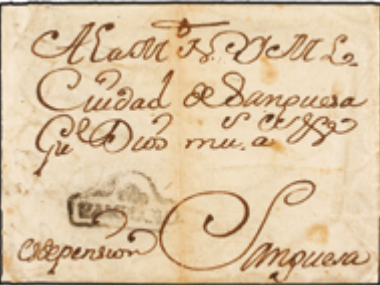 A La M N. Y M L
Ciudad de Sanguesa
Gue Dios mu. a
es de pension Sanguesa